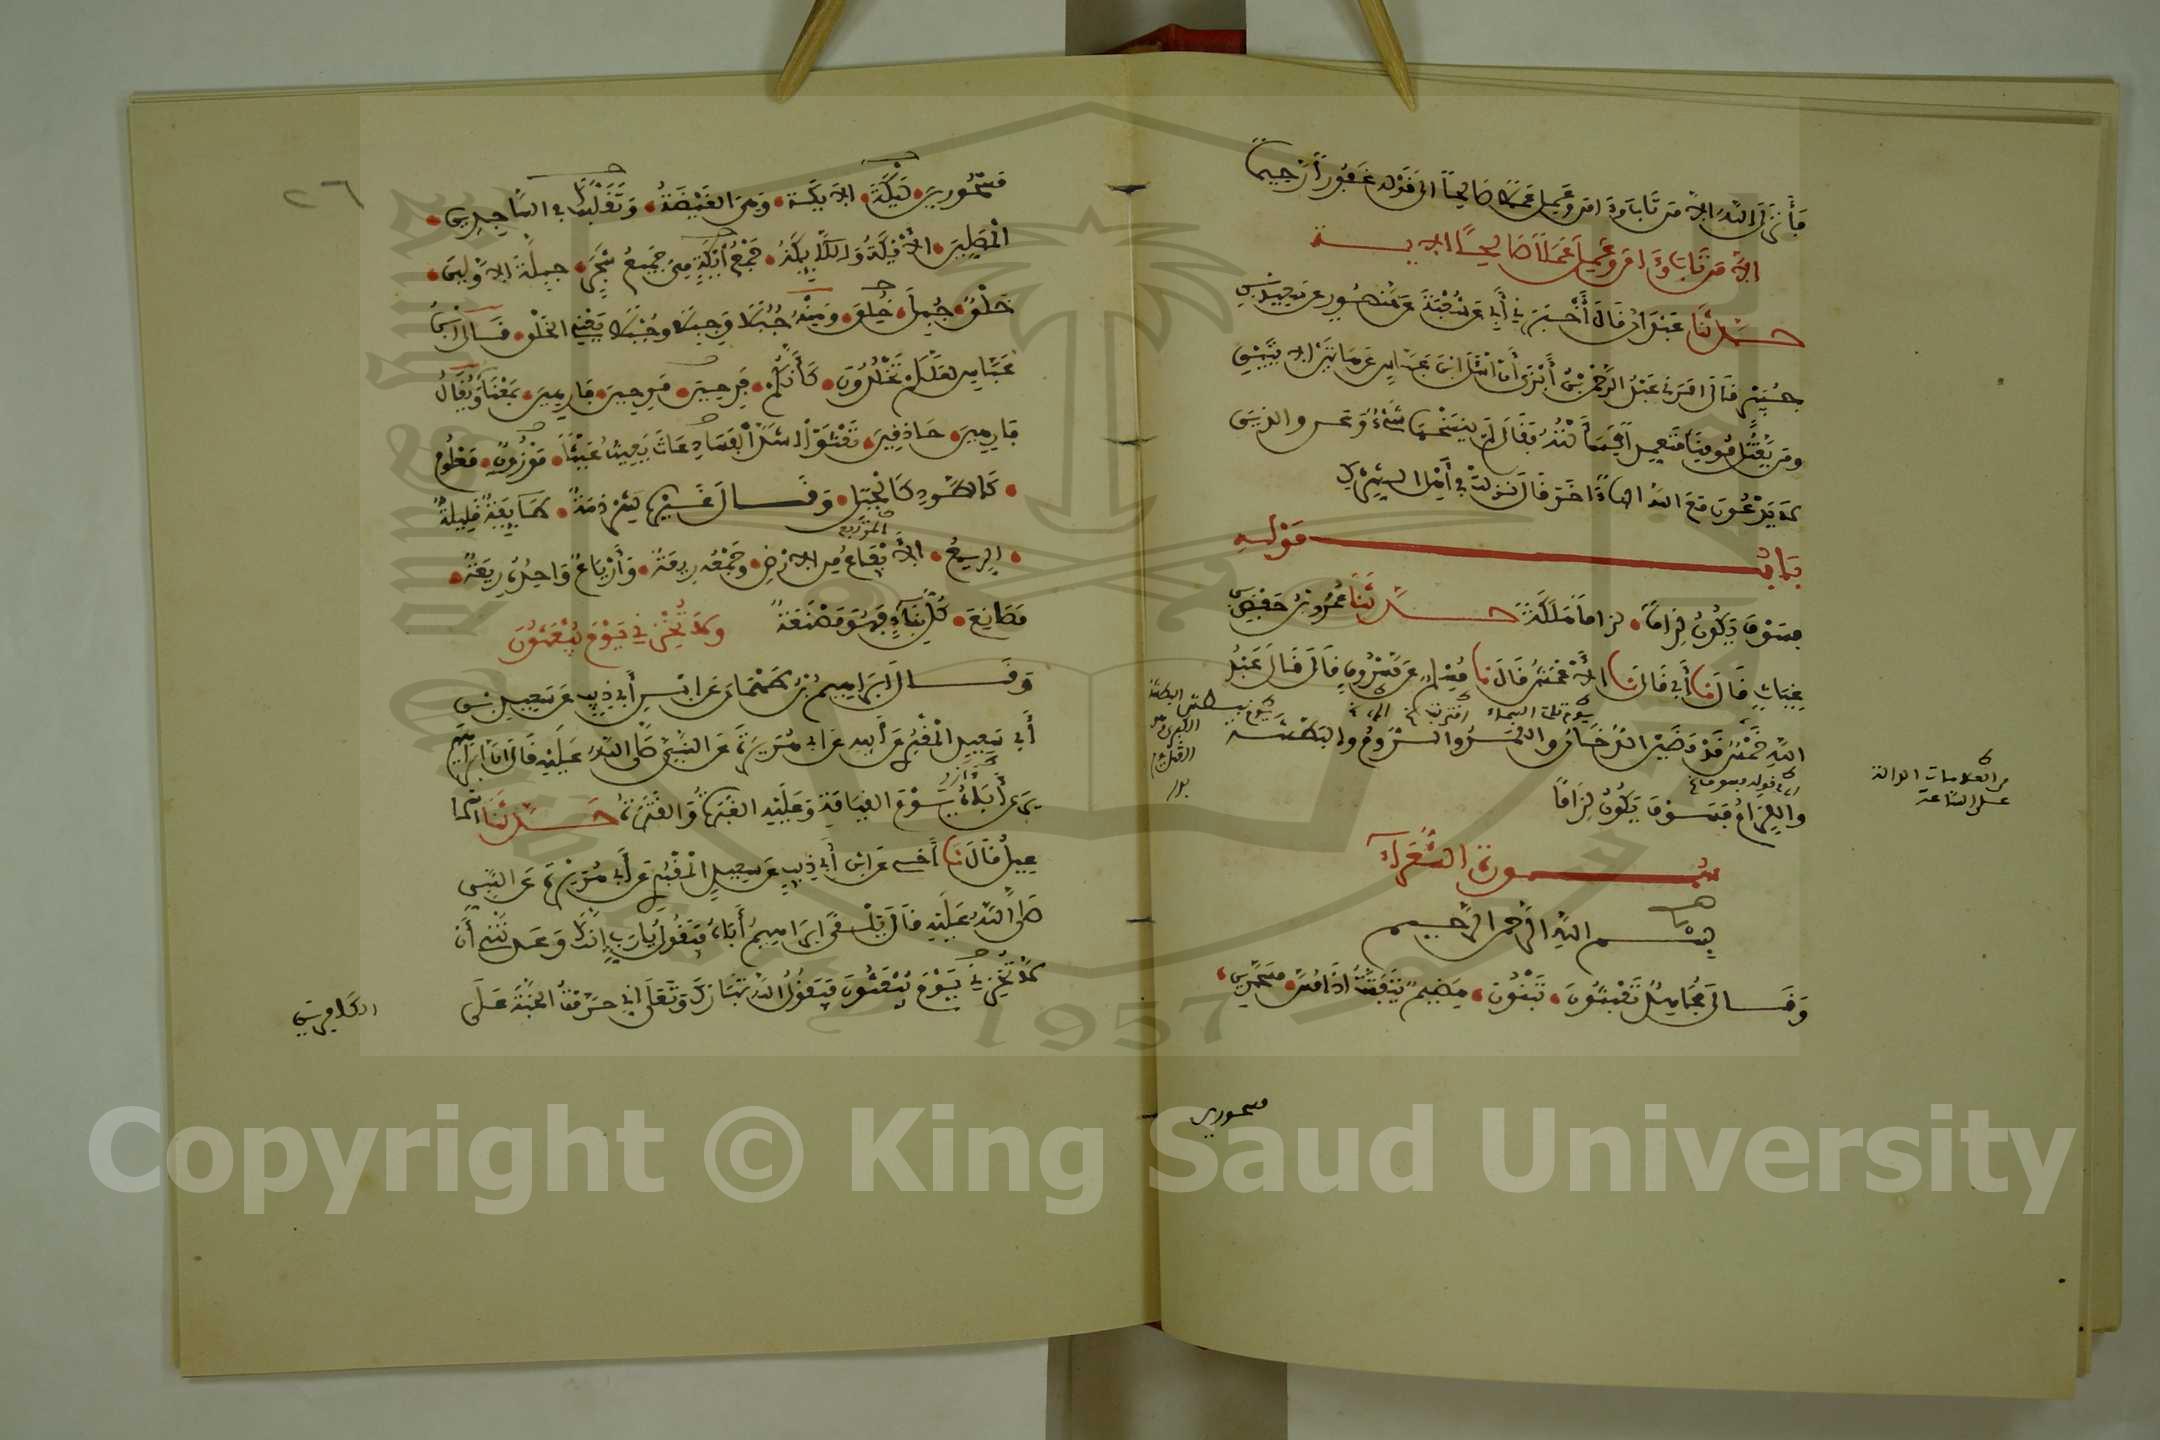 فَأَنْزَلَ اللهُ إلاّ مَن تَابَ وَءَامَنَ وَعَمِلَ عَمَلًا صَالِحًا الى قَوْلِه غَفُورًا رَّحِيمًا
إلاّ مَن تَابَ وَءَامَنَ وَعَمِلَ عَمَلًا صَالِحًا الايـــــة
حـــدّثَنَا عَبْدَانُ قَالَ أَخْبَرَنِي أَبِي عَن شُعْبَةَ عَن مَنْصُورٍ عن سَعِيدِ بنِ
جُبَيْرٍ قَالَ أمَرَنِي عَبْدُ الرَّحْمٰنِ بْنُ أَبْزَى أَنْ أسْئَلَ ابْنَ عَبَّاسٍ عَن هَاتَيْنِ الايَتَيْنِ
ومَن يَقْتُلْ مُومِنًا مُتَعَمِّدًا فَسَأَلْتُهُ فَقَالَ لَمْ يَنْسَخْهَا شَيْءٌ وَعـن والذِينَ
لا يَدْعُونَ مَعَ اللهِ إلـهًا ءَاخَرَ قَالَ نَزَلَتْ في أَهْلِ الشِّرْكِ
بَابُ قَوْلِهِ
فسَوْفَ يَكُونُ لِزَامًا • لزامًا هَلَكَةً حــدّثَنَا عُمَرُ بْنُ حَفْصِ بْنِ
غِيَاثٍ قَالَ نَا أَبِي قَالَ نَا الأَعْمَشُ قَالَ نَا مُسْلِمٌ عَن مَسْرُوقٍ قَالَ قَالَ عَبْدُ
اللهِ خَمْسٌ قَدْ مَضَيْنَ الدُّخَانُ والقَمَرُ والرُّومُ والبَطْشَةُ
واللِّزَامُ فَسَـوْفَ يَكُونُ لِزَامًا
من العلامات الدالة
على الساعة
سُـــورة الشُّعَرَاءِ
بِسْــــم اللهِ الرَّحْمٰنِ الرَّحِيـــمِ
وَقَـــالَ مُجَاهِدٌ تَعْبَثُونَ • تَبْنُونَ • هَضِيمٌ يَتَفَتَّتُ إِذَا مُسَّ • مُسَحَّرِينَ
مسحورين
٢٦
مَسْحُورِينَ • لَيْكَةَ • الايْكَة • وَهيَ الغَيْضَةُ • وَتَقَلُّبَكَ في السَّاجِدِينَ •
المُصَلِّينَ • الأَيْكَةُ ولَيْكَةُ • جَمْعُ أيْكَةٍ وهيَ جَمِيعُ شَجَرٍ • جِبِلَّةَ الاوَّلِينَ •
خَلْقٌ • جُبِلَ • خُلِقَ • وَمِنْهُ جُبُلًا وَجِبِلًا وجُبْلًا يَعْنِي الخَلْقَ • قَــالَ ابْنُ
عَبَّاسٍ لعَلَّكُمْ تَخْلُدُونَ • كَأنَّكُمْ • فَرِهِينَ • مَرِحِينَ • فَارِهِينَ • بِمَعْنَاهُ وَيُقَالُ
فَارِهِينَ • حَاذِقِينَ • تَعْثَوْا أشَدَّ الفَسَادِ عَاثَ يَعِيثُ عَيْثًا • مَوْزُونٍ • مَعْلُومٍ
• كَالطَّوْدِ كَالْجَبَلِ • وَقَــالَ غَيْرُهُ لَشِرْذِمَةٌ • طَايِفَةٌ قَلِيلَةٌ
• الرِّيعُ • الأَيْفَاعُ مِن الارْضِ • وَجَمْعُهُ رِيعَةٌ • وَأَرْيَاعٌ وَاحِدُهُ رِيعَةٌ •
مَصَانِعَ • كُلُّ بِنَاءٍ فَهُوَ مَصْنَعَةٌ وَلا تُخْزِنِي يَوْمَ يُبْعَثُونَ
وَقَـــالَ إبْرَاهِيمُ بْنُ طَهْمَانَ عَن ابْنِ أَبِي ذِيبٍ عَن سَعِيدِ بنِ
أَبِي سَعِيدٍ المَقْبُرِيِّ عَن أَبِيهِ عَن أبِي هُرَيْرَةَ عَن النَّبِيِّ صَلَّى اللهُ عَلَيْهِ قَالَ إنَّ إبْرَاهِيمَ
يَرَى أَبَاهُ يَـوْمَ القِيَامَةِ وَعَلَيْهِ الغَبَرَةُ وَالقَتَرَةُ حَــدّثَنَا اسْمَا
عِيلُ قَالَ نَا أَخِـي عَن ابْنِ أَبِي ذِيبٍ عَن سَعِيدٍ المَقْبُرِيِّ عَن أَبِي هُرَيْرَةَ عَن النَّبِيِّ
صَلَّى اللهُ عَلَيْهِ قَالَ يَلْـقَى إبْرَاهِيمُ أَبَاهُ فَيَقُولُ يَا رَبِّ إنَّكَ وَعَدْتَنِي أَنْ
لا تُخْزِنِي يَوْمَ يُبْعَثُونَ فَيَقُولُ اللهُ تَبَارَكَ وَتَعَالَى إنِّي حَرَّمْتُ الجَنَّةَ عَلَى
الكافرين
Copyright © King Saud University
1957